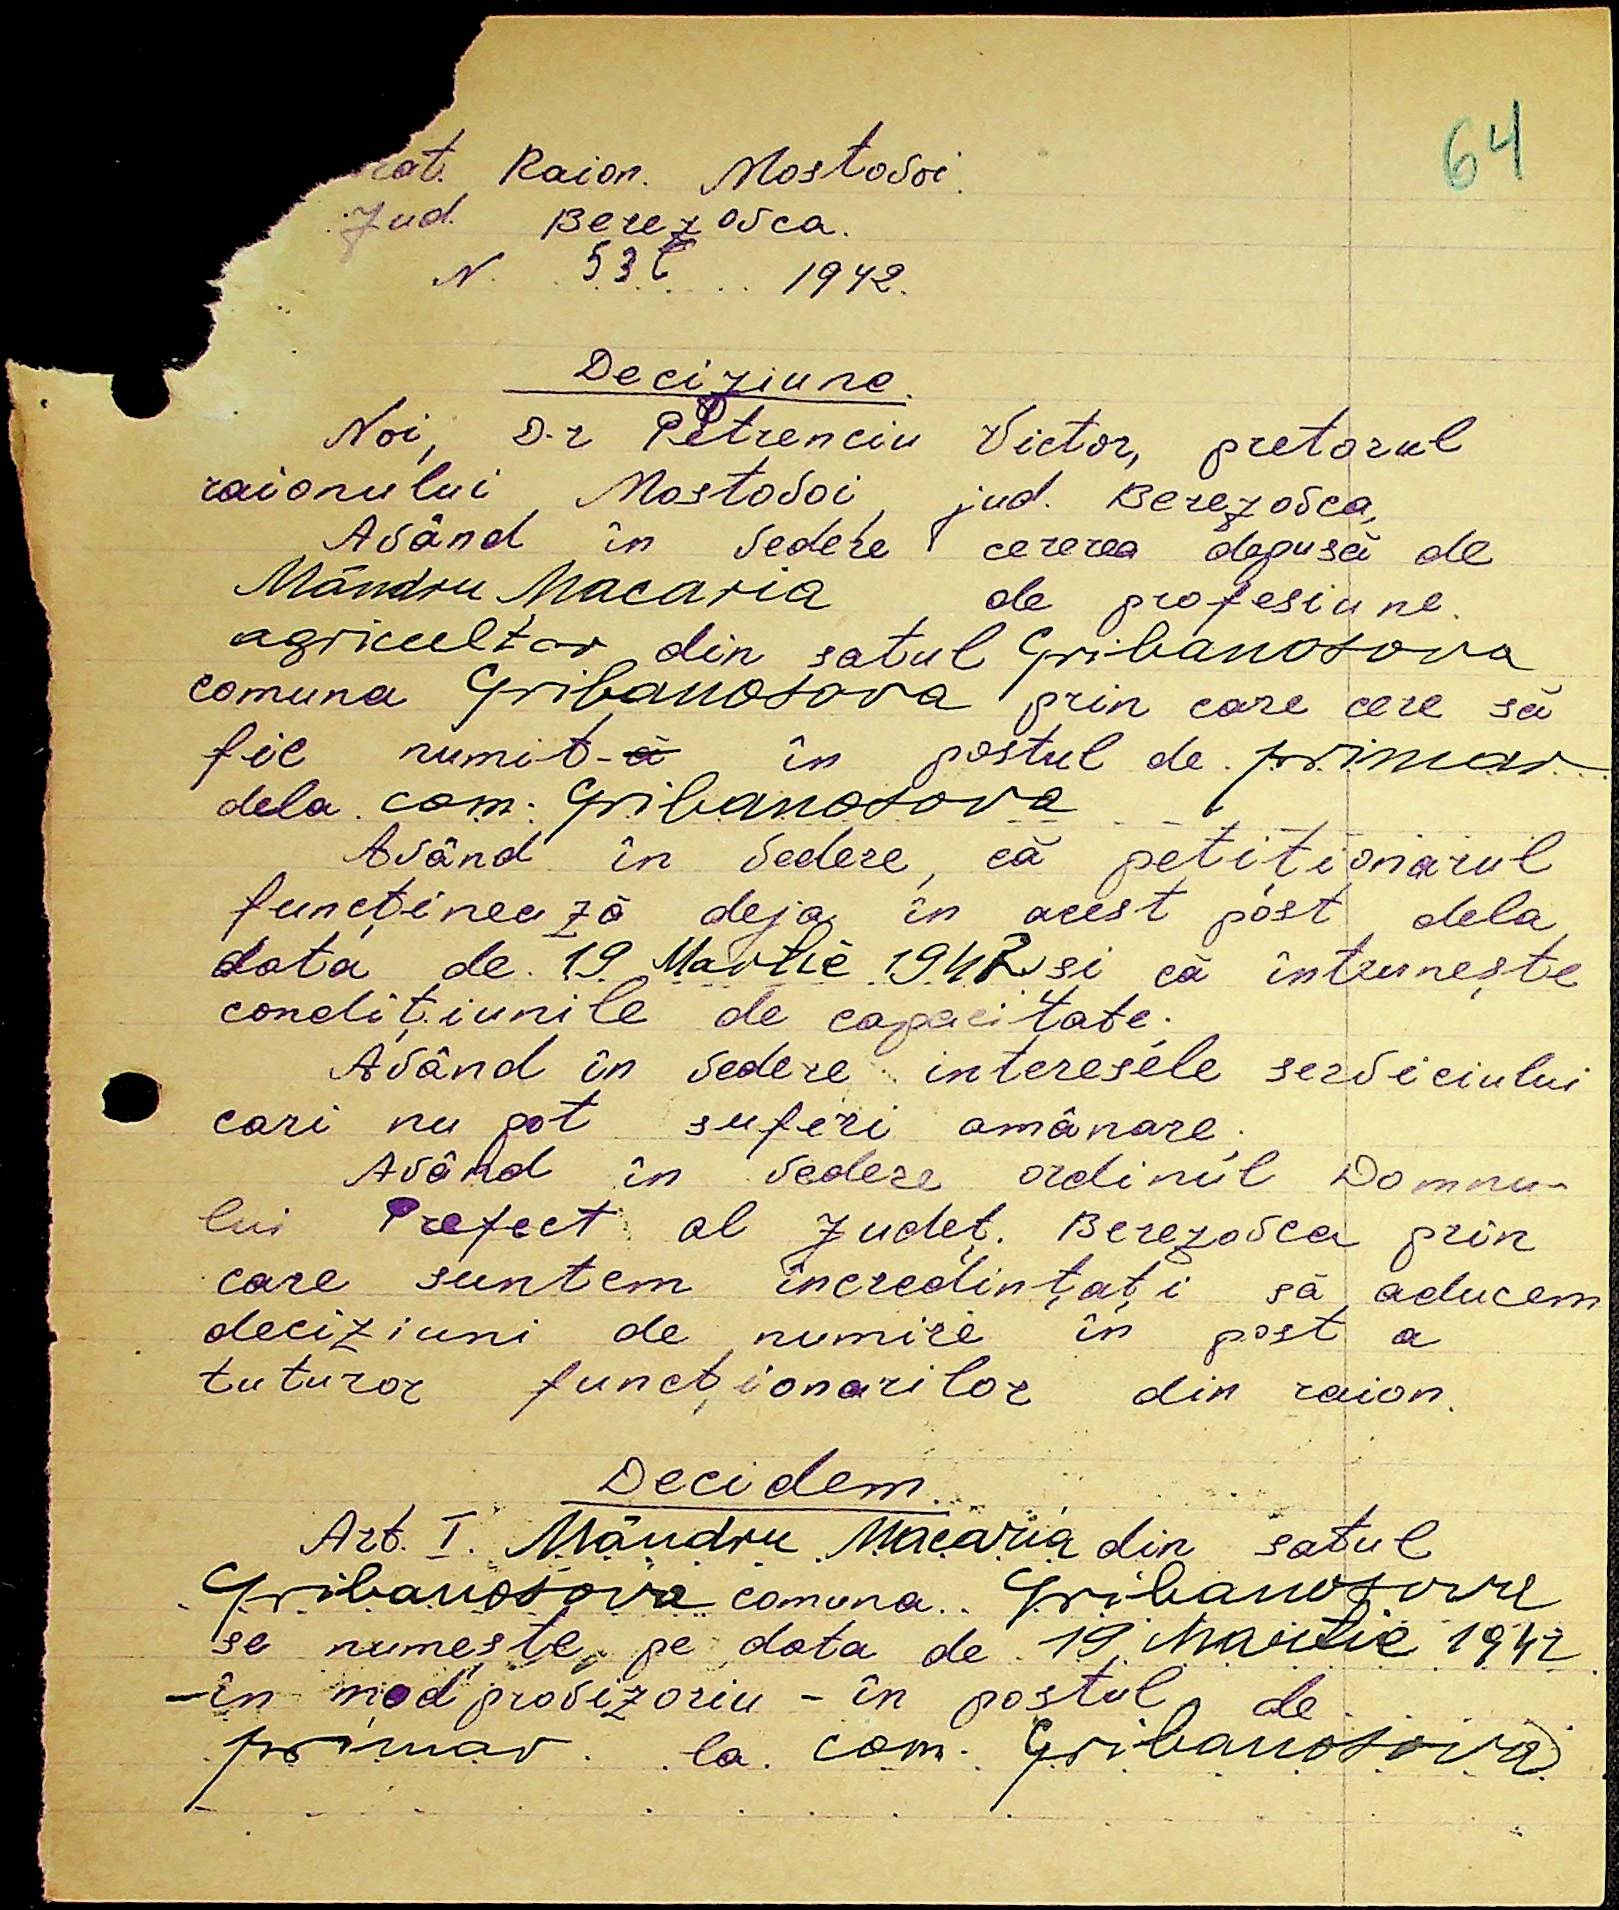 64
rat. Raion. Mostovoi.
Jud. Berezovca.
N. 1942.
Deciziune.
Noi, D-r Petrenciu Victor, pretorul
raionului Mostovoi, jud. Berezovca,
Având în vedere cererea depusă de
Mândru Macaria de profesiune.
agricultor din satul Gribanosova
comuna Gribanosova prin care cere să
fie numit-ă în postul de primar
dela com. Gribanosova
Având în vedere, că petiționarul
funcținează deja în acest post dela
data de 19 Martie 1942 și că întrunește
condițiunile de capacitate.
Având în vedere interesele serviciului
cari nu pot suferi amânare.
Având în vedere ordinul Domnu-
lui Prefect al Județ. Berezovca prin
care suntem încredințați să aducem
deciziuni de numire în post a
tuturor funcționarilor din raion.
Decidem.
Art. I. Mândru Macaria din satul
Gribanosova comuna Gribanosova
se numește pe data de 19 Martie 1942
-în mod provizoriu - în postul de
primar la com. Gribanosova